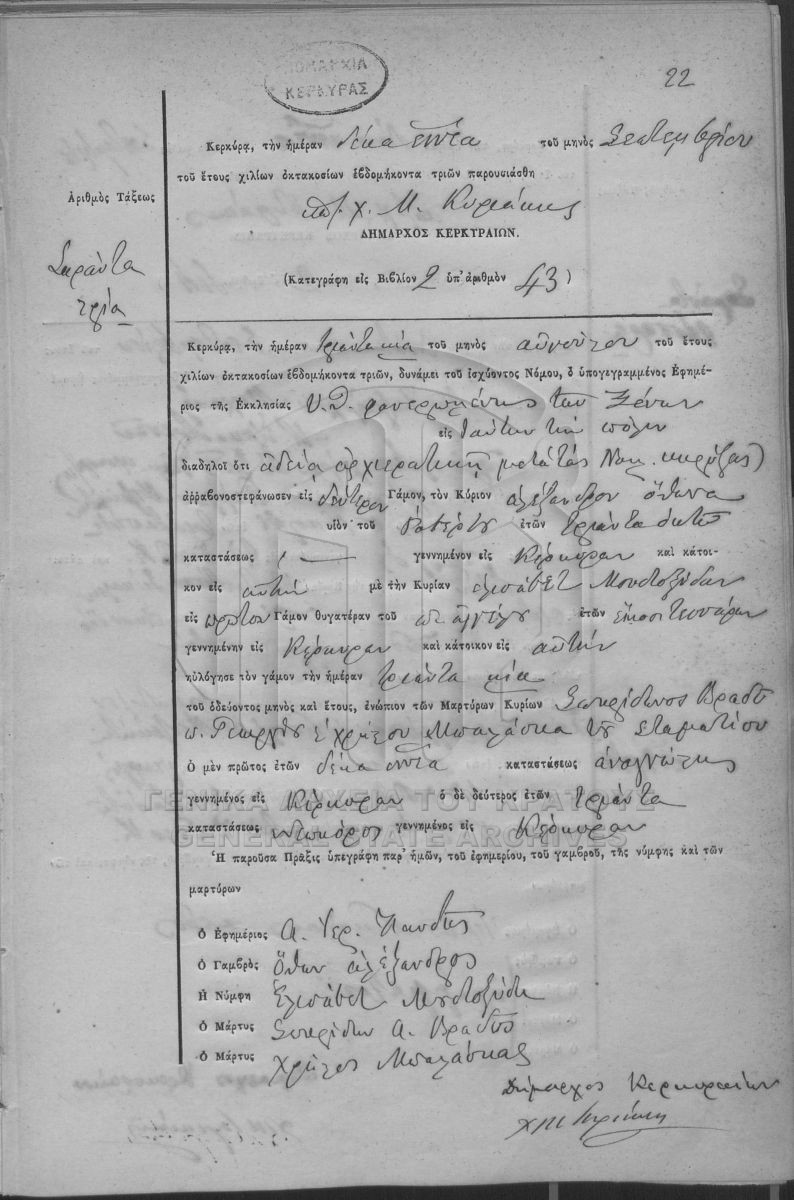 22
ΝΟΜΑΡΧΙΑ
ΚΕΡΚΥΡΑΣ
Κερκύρᾳ, τὴν ἡμέραν δέκα ἐννέα τοῦ μηνὸς Σεπτεμβρίου
τοῦ ἔτους χιλίων ὀκτακοσίων ἑβδομήκοντα τριῶν παρουσιάσθη
Χ. Μ. Κυριάκης
ΔΗΜΑΡΧΟΣ ΚΕΡΚΥΡΑΙΩΝ.
(Κατεγράφη εἰς Βιβλίον 2 ὑπ' ἀριθμὸν 43)
Ἀριθμὸς Τάξεως
Σαράντα
τρία
Κερκύρᾳ, τὴν ἡμέραν τριάντα μία τοῦ μηνὸς αὐγούστου τοῦ ἔτους
χιλίων ὀκτακοσίων ἑβδομήκοντα τριῶν, δυνάμει τοῦ ἰσχύοντος Νόμου, ὁ ὑπογεγραμμένος Ἐφημέ-
ριος τῆς Ἐκκλησίας Υ. Θ. φανερωμένης των Ξένων
εἰς ταύτην τὴν πόλιν
διαδηλοῖ ὅτι ἀδείᾳ ἀρχιερατικῇ μετὰ τὰς κηρύξας
ἀρραβονοστεφάνωσεν εἰς δεύτερον Γάμον, τὸν Κύριον ἀλέξανδρον ὄθωνα
υἱὸν τοῦ ἐτῶν τριάντα ὀκτὼ
καταστάσεως γεννημένον εἰς Κέρκυραν καὶ κάτοι-
κον εἰς αὐτὴν μὲ τὴν Κυρίαν ἐλισάβετ Μουστοξύδου
εἰς πρῶτον Γάμον θυγατέραν τοῦ ἐτῶν εἴκοσι τεσσάρων
γεννημένην εἰς Κέρκυραν καὶ κάτοικον εἰς αὐτήν
ηὐλόγησε τὸν γάμον τὴν ἡμέραν τριάντα μία
τοῦ ὁδεύοντος μηνὸς καὶ ἔτους, ἐνώπιον τῶν Μαρτύρων Κυρίων Σπυρίδωνος
Γεωργίου Χρήστου Μπαλάσκα τοῦ σταματίου
Ὁ μὲν πρῶτος ἐτῶν δέκα ἐννέα καταστάσεως ἀναγνώστης
γεννημένος εἰς Κέρκυραν ὁ δὲ δεύτερος ἐτῶν τριάντα
καταστάσεως νεωκόρος γεννημένος εἰς Κέρκυραν
ΓΕΝΙΚΑ ΑΡΧΕΙΑ ΤΟΥ ΚΡΑΤΟΥΣ
GENERAL STATE ARCHIVES
Ἡ παροῦσα Πρᾶξις ὑπεγράφη παρ' ἡμῶν, τοῦ ἐφημερίου, τοῦ γαμβροῦ, τῆς νύμφης καὶ τῶν
μαρτύρων
ὁ Ἐφημέριος Α. Ἱερ.
Ὁ Γαμβρὸς ὄθων ἀλέξανδρος
Ἡ Νύμφη Ἐλισάβετ Μουστοξύδη
Ὁ Μάρτυς Σπυρίδων Α.
Ὁ Μάρτυς Χρῆστος Μπαλάσκας
Δήμαρχος Κερκυραίων
Χ Μ Κυριάκης